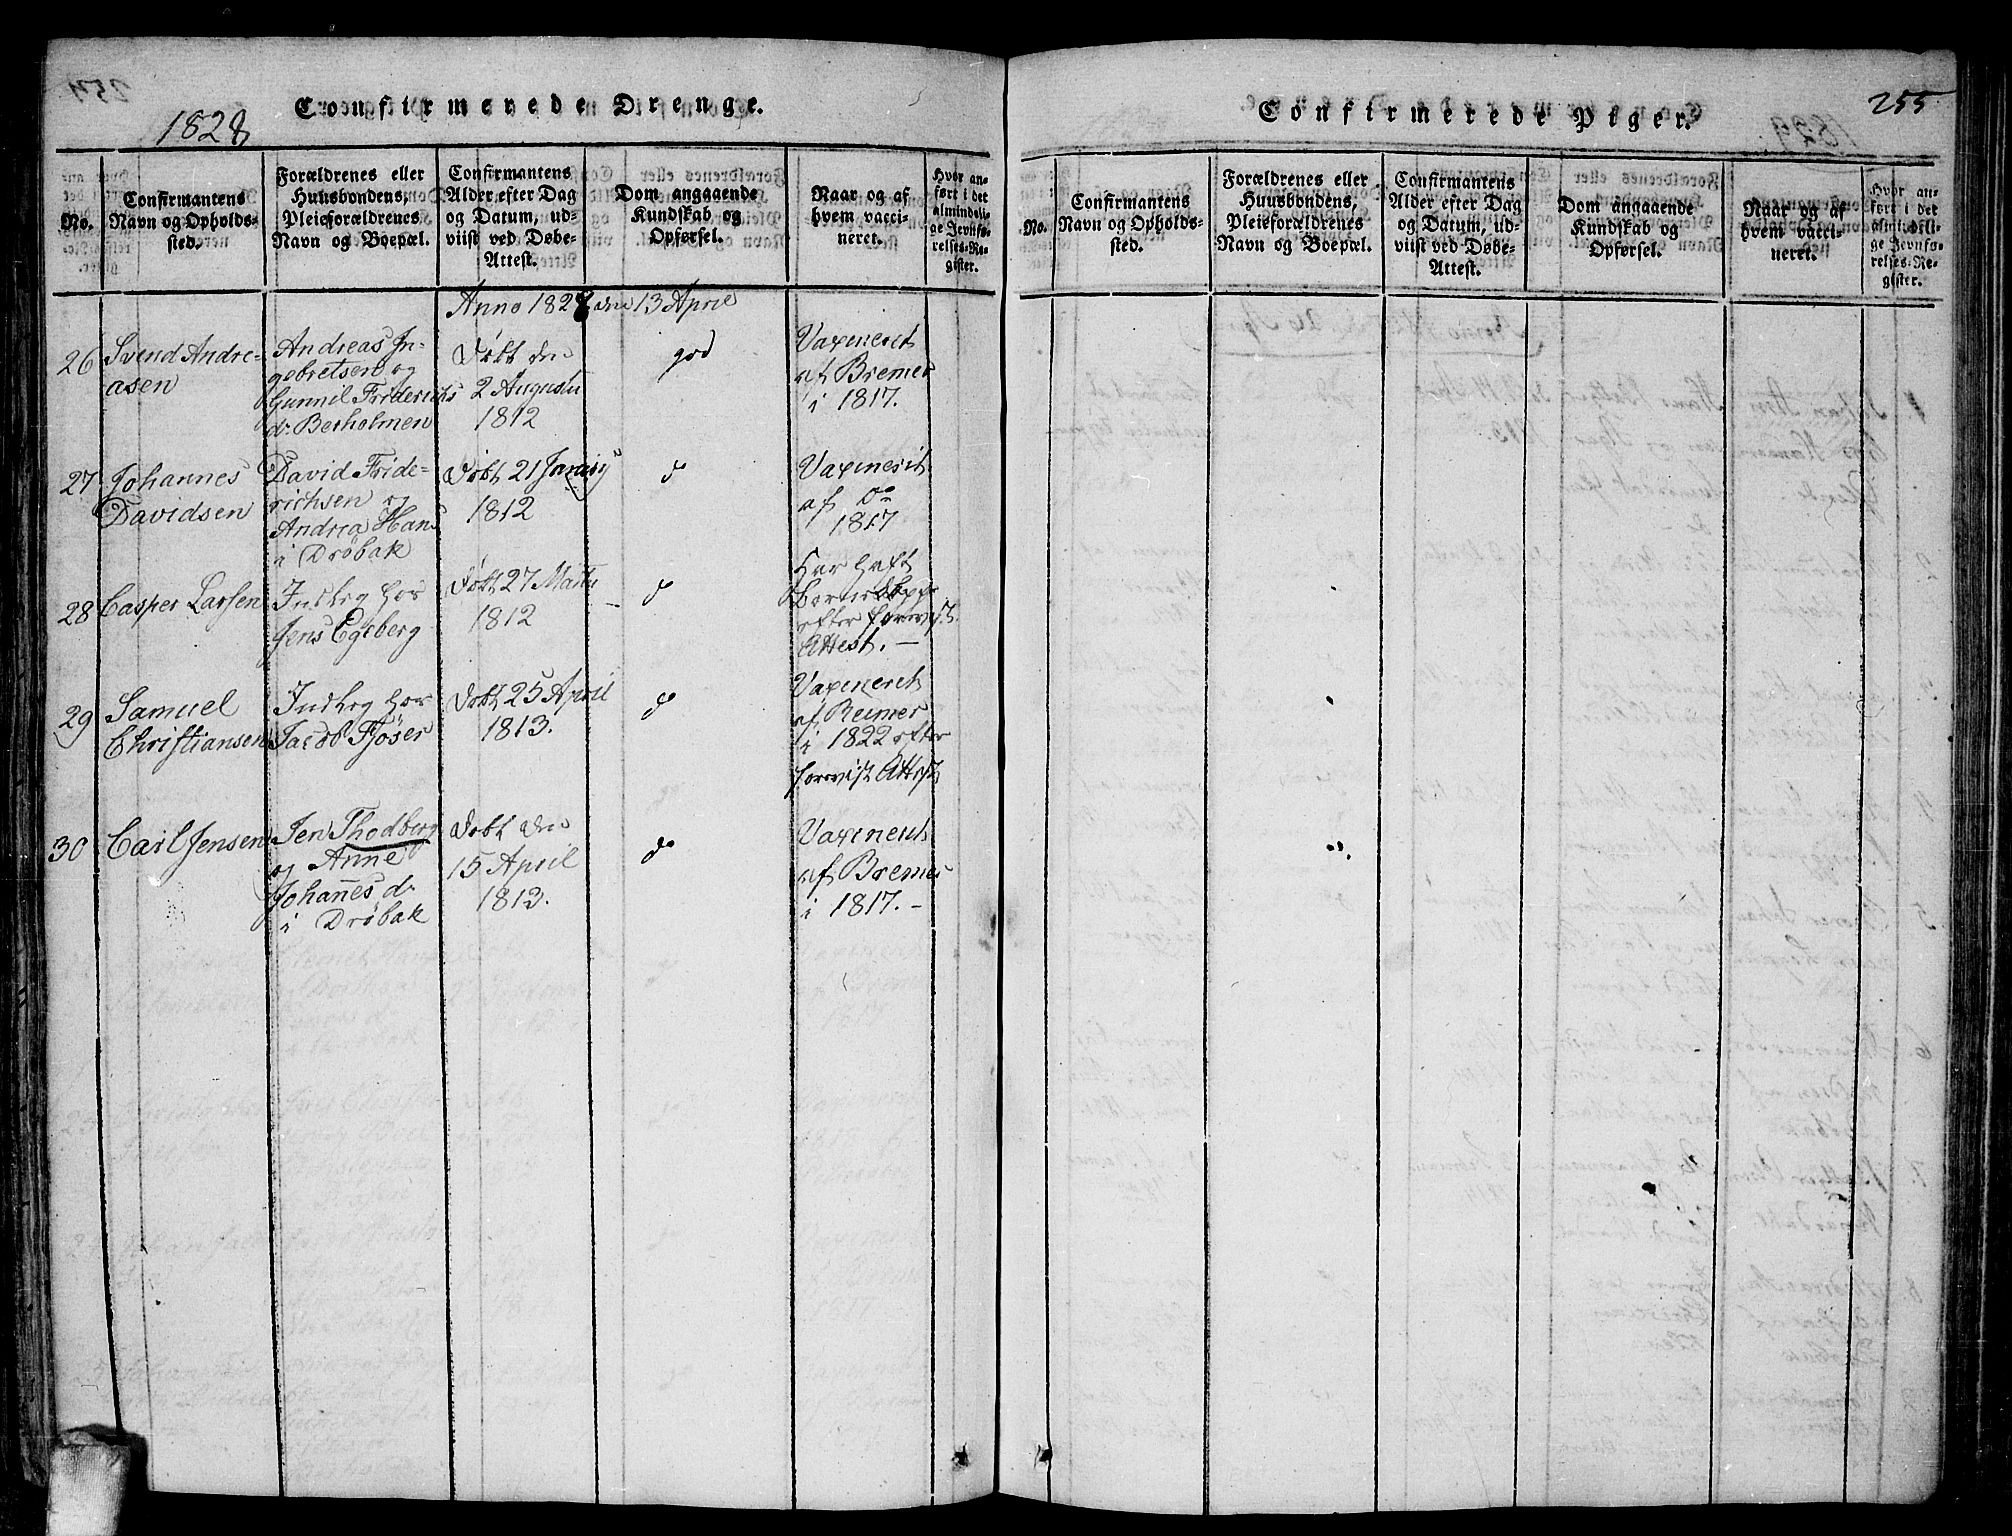 1828
Confirmerede Drenge.
No.
Confirmantens
Navn og Opholds-
sted.
Forældrenes eller
Huusbondens,
Pleieforældrenes
Navn og Boepæl.
Confirmantens
Alder efter Dag
og Datum, ud-
viist ved Døbe-
Attest.
Dom angaaende
Kundskab og
Opførsel.
Naar og af
hvem vacci-
neret.
Hvor an-
ført i det
almindeli-
ge Jevnfø-
relses-Re-
gister.
Anno 1828 den 13 April
26
Svend Andre-
asen
Andreas In-
gebretsen og
Gunnil Friderichs
d. Berholmen
Født den
2 Augustii
1812
god
Vaxinerit
af Bremer
i 1817.
27
Johannes
Davidsen
David Fride-
richsen og
Andrea Hans
i Drøbak
Født 21 Januarij
1812
do
Vaxinerit
af do
1817
28
Casper Larsen
Inderg hos
Jens Egeberg
Født 27 Martii
1812
do
Har haft
efter forevist
Attest. —
29
Samuel
Christiansen
hos
Jacob Fjøser
Født 25 April
1813.
do
Vaxinerit
af Reimer
i 1822 efter
forevist Attest
30
Carl Jensen
Jen Thodberg
og Anne
Johanes d.
i Drøbak
Født den
15 April
1813.
do
Vaxinerit
af Bremer
i 1817. –
255
Confirmerede Piger.
No.
Confirmantens
Navn og Opholds-
sted.
Forældrenes eller
Huusbondens,
Pleieforældrenes
Navn og Boepæl.
Confirmantens
Alder efter Dag
og Datum, ud-
viist ved Døbe-
Attest.
Dom angaaende
Kundskab og
Opførsel.
Naar og af
hvem vacci-
neret.
Hvor an-
ført i det
almindeli-
ge Jevnfø-
relses-Re-
gister.